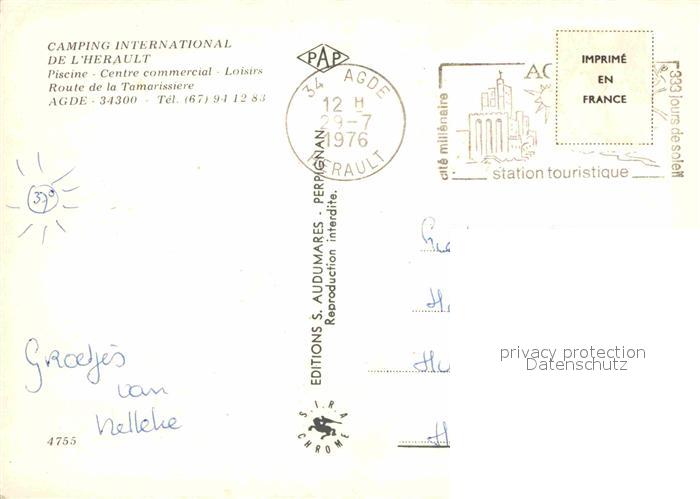 CAMPING INTERNATIONAL
DE L'HERAULT
Piscine - Centre commercial - Loisirs
Route de la Tamarissiere
AGDE - 34300 - Tél. (67) 94 12 83
37°
Groetjes
van
Nelleke
4755
PAP
34 AGDE
12 H
29-7
1976
HERAULT
EDITIONS S. AUDUMARES - PERPIGNAN
Reproduction interdite.
S.I.R.A
CHROME
cité millénaire
station touristique
333 jours de soleil
IMPRIMÉ
EN
FRANCE
privacy protection
Datenschutz